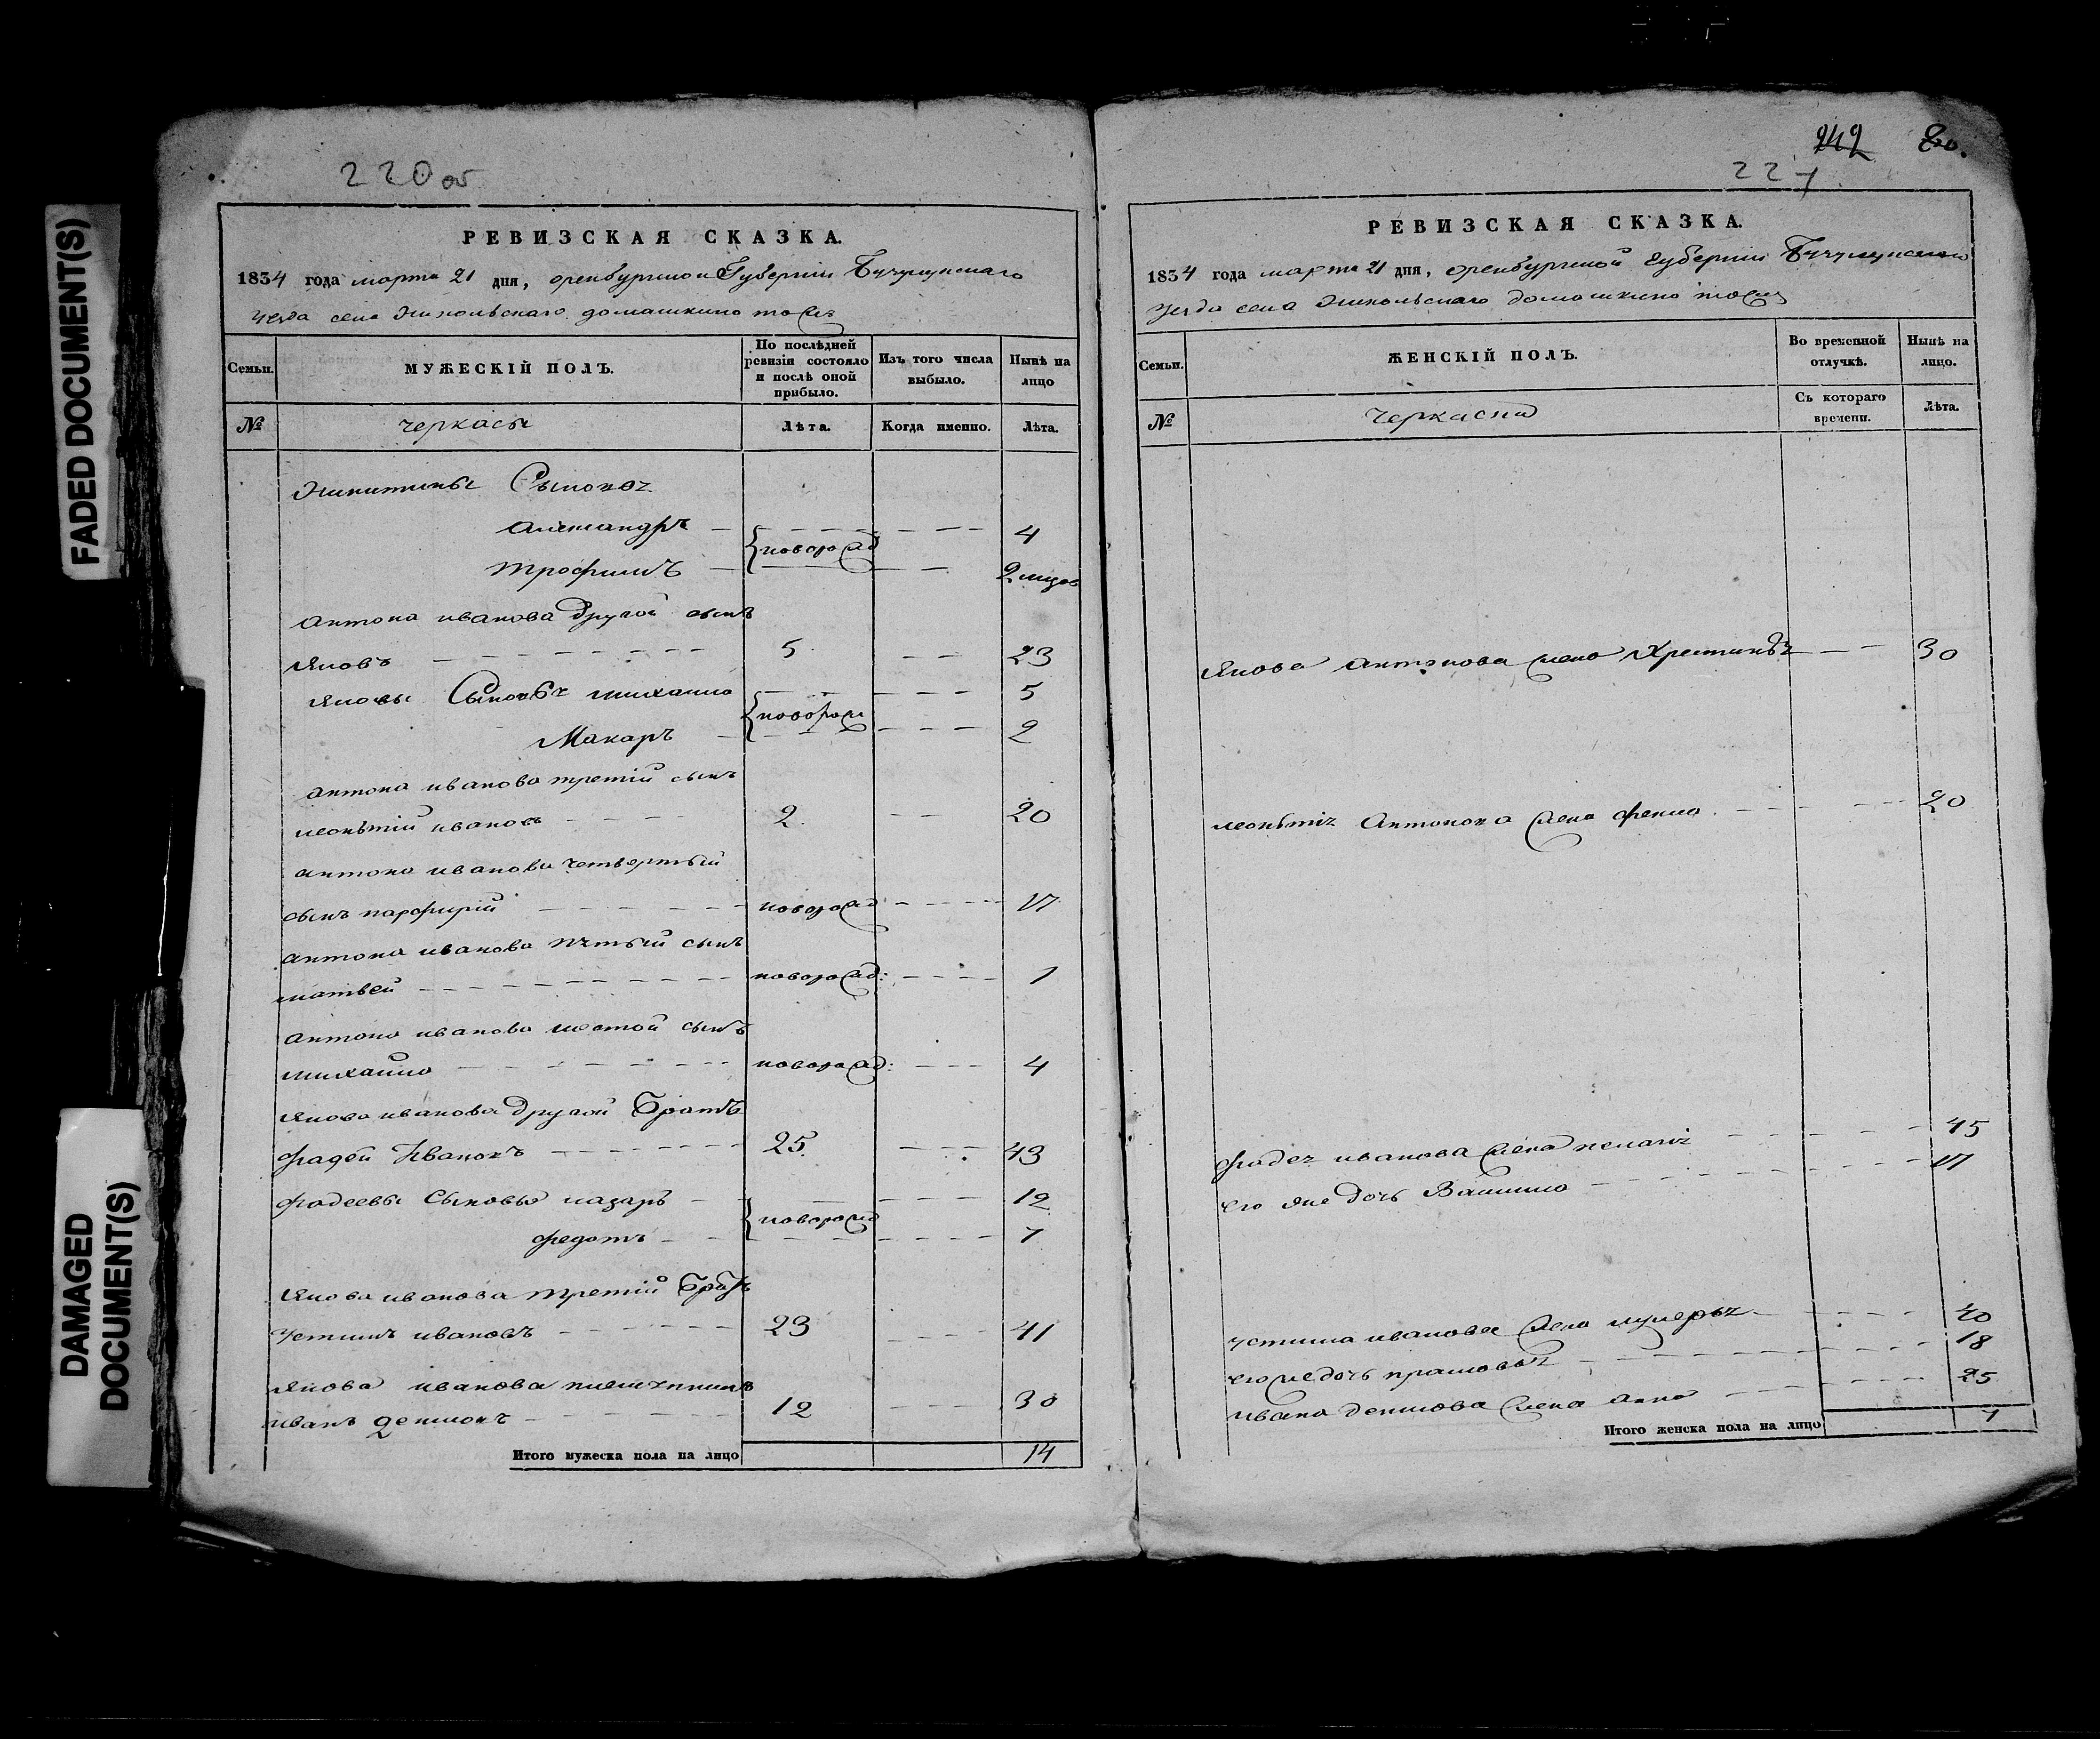 FADED DOCUMENT(S)
DAMAGED
DOCUMENT(S)
220 об
РЕВИЗСКАЯ СКАЗКА.
1834 года марта 21 дня, оренбургской Губернии Бузулукскаго
уезда села Никольскаго домашкино тожъ
Семьи. МУЖЕСКІЙ ПОЛЪ. По послѣдней ревизіи состояло и послѣ оной прибыло. Изъ того числа выбыло. Нынѣ на лицо
№ черкасы Лѣта. Когда именно. Лѣта.
Никитины Сыновья
Александръ 4
новорожд
трофимъ 2 мцов
антона иванова другой сынъ
яковъ 5 23
яковы Сыновья михаило 5
новорож
Макаръ 2
антона иванова третій сынъ
леонтий ивановъ 2 20
антона иванова четвертый
сынъ парфирій новорожд 17
антона иванова пятый сынъ
матвей новорожд: 7
антона иванова шестой сынъ
михайло новорожд: 4
якова иванова другой Братъ
фадей Ивановъ 25 43
фадеевы Сыновья назаръ 12
новорожд
федотъ 7
якова иванова третій Братъ
устинъ ивановъ 23 41
якова иванова племянникъ
иванъ денисовъ 12 30
Итого мужеска пола на лицо 14
242 80.
221
РЕВИЗСКАЯ СКАЗКА.
1834 года марта 21 дня, оренбургской губернии Бузулукскаго
уезда села Никольскаго домашкино тожъ
Семьи. ЖЕНСКІЙ ПОЛЪ. Во временной отлучкѣ. Нынѣ на лицо.
№ Черкаски Съ котораго времени. Лѣта.
якова антонова жена Христинья 30
леонтия Антонова жена фекла 20
фадея иванова жена пелагия 45
его же дочь 17
устина иванова жена лукерья 40
его же дочь прасковья 18
ивана денисова жена анна 25
Итого женска пола на лицо 7